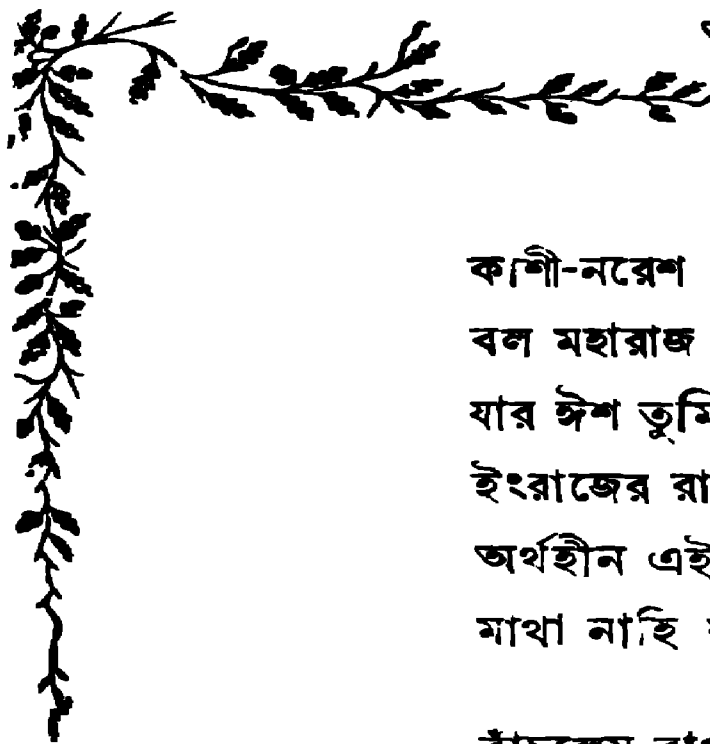 কাশী-নরেশ
বল মহারাজ
যার ঈশ তুমি
ইংরাজের রা
অর্থহীন এই
মাথা নাহি